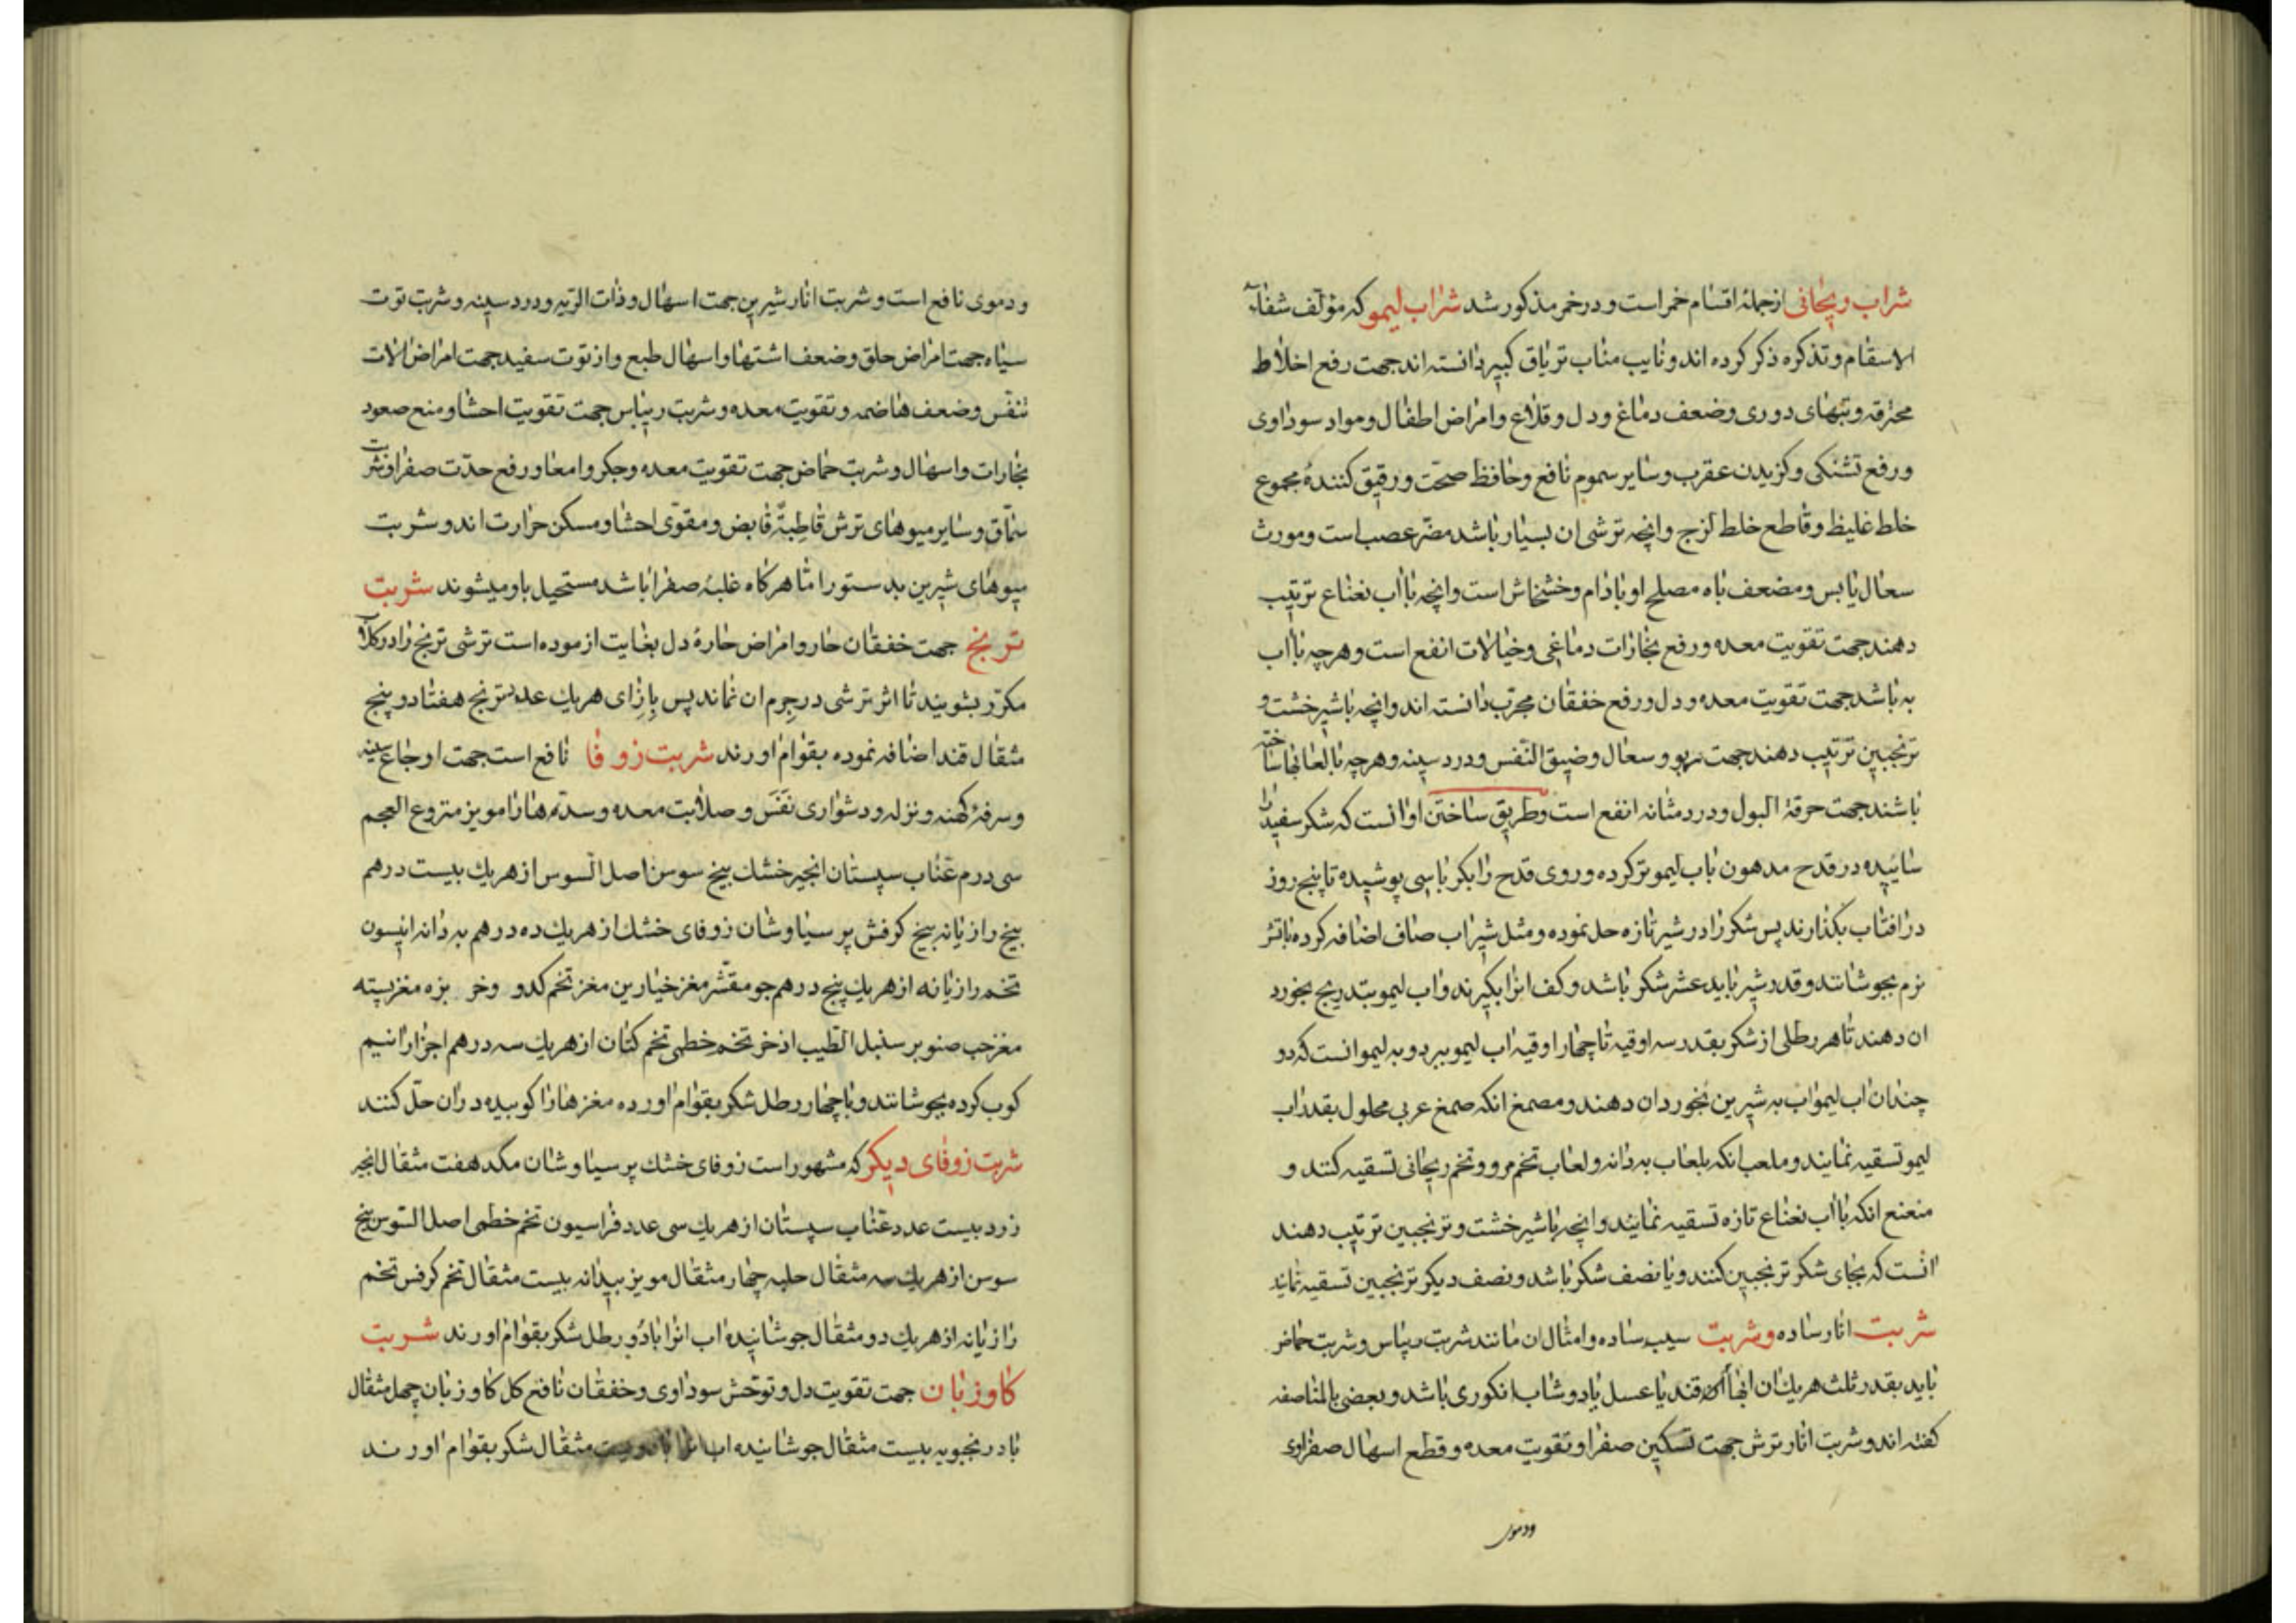 شراب ریحانی از جملهٔ اقسام خمر است و در خمر مذکور شد شراب لیمو که مؤلف شفاء
الاسقام و تذکره ذکر کرده اند و نایب مناب تریاق کبیر دانسته اند جهت رفع اخلاط
محترقه و تبهای دوری و ضعف دماغ و دل و قلاع و امراض اطفال و مواد سوداوی
و رفع تشنکی و کزیدن عقرب و سایر سموم نافع و حافظ صحّت و رقیق کنندهٔ مجموع
خلط غلیظ و قاطع خلط لزج و انچه ترشی ان بسیار باشد مضرّ عصب است و مورث
سعال یابس و مضعف باه مصلح او بادام و خشخاش است و انچه با اب نعناع ترتیب
دهند جهت تقویت معده و رفع بخارات دماغی و خیالات انفع است و هرچه با اب
به باشد جهت تقویت معده و دل و رفع خفقان مجرّب دانسته اند و انچه با شیرخشت و
ترنجبین ترتیب دهند جهت ربو و سعال و ضیق النّفس و درد سینه و هرچه با لعابها ساخته
باشند جهت حرقة البول و درد مثانه انفع است و طریق ساختن او انست که شکر سفید را
سائیده در قدح مدهون باب لیمو تر کرده و روی قدح را بکرباسی پوشیده تا پنج روز
در افتاب بکذارند پس شکر را در شیر تازه حل نموده و مثل شیر اب صاف اضافه کرده باتش
نرم بجوشانند و قدر شیر باید عشر شکر باشد و کف انرا بکیرند و اب لیمو بتدریج بخورد
ان دهند تا هر رطلی از شکر بقدر سه اوقیه تا چهار اوقیه اب لیمو ببرد و به لیمو انست که دو
چندان اب لیمو اب به شیرین بخورد ان دهند و مصمغ انکه صمغ عربی محلول بقدر اب
لیمو تسقیه نمایند و ملعب انکه بلعاب به دانه و لعاب تخم مرو و تخم ریحانی تسقیه کنند و
منعنع انکه با اب نعناع تازه تسقیه نمایند و انچه با شیرخشت و ترنجبین ترتیب دهند
انست که بجای شکر ترنجبین کنند و یا نصف شکر باشد و نصف دیکر ترنجبین تسقیه نمایند
شربت انار ساده و شربت سیب ساده و امثال ان مانند شربت ریباس و شربت حماض
باید بقدر ثلث هر یک ان ابها قند یا عسل یا دوشاب انکوری باشد و بعضی بالمناصفه
کفته اند و شربت انار ترش جهت تسکین صفرا و تقویت معده و قطع اسهال صفراوی
ودموی
و دموی نافع است و شربت انار شیرین جهت اسهال و ذات الریه و درد سینه و شربت توت
سیاه جهت امراض حلق و ضعف اشتها و اسهال طبع و از توت سفید جهت امراض الات
تنفّس و ضعف هاضمه و تقویت معده و شربت ریباس جهت تقویت احشا و منع صعود
بخارات و اسهال و شربت حماض جهت تقویت معده و جکر و امعا و رفع حدّت صفرا و شربت
سمّاق و سایر میوهای ترش قاطبةً قابض و مقوّی احشا و مسکن حرارت اند و شربت
میوهای شیرین بدستور امّا هرکاه غلبهٔ صفرا باشد مستحیل باو میشوند شربت
ترنج جهت خفقان حار و امراض حارهٔ دل بغایت ازموده است ترشی ترنج را در کلاب
مکرّر بشویند تا اثر ترشی در جِرم ان نماند پس بازای هر یک عدد ترنج هفتاد و پنج
مثقال قند اضافه نموده بقوام اورند شربت زوفا نافع است جهت اوجاع سینه
و سرفهٔ کهنه و نزله و دشواری نَفَس و صلابت معده و سدّه ها را مویز منزوع العجم
سی درم عنّاب سپستان انجیر خشک بیخ سوسن اصل السوس از هر یک بیست درهم
بیخ رازیانه بیخ کرفش پر سیاوشان زوفای خشک از هر یک ده درهم به دانه انیسون
تخم رازیانه از هر یک پنج درهم جو مقشّر مغز خیارین مغز تخم کدو و خر بزه مغز پسته
مغز حب صنوبر سنبل الطّیب اذخر تخم خطمی تخم کتان از هر یک سه درهم اجزا را نیم
کوب کرده بجوشانند و با چهار رطل شکر بقوام اورده مغزها را کوبیده در ان حلّ کنند
شربت زوفای دیکر که مشهور است زوفای خشک پر سیاوشان مکد هفت مثقال انجیر
زرد بیست عدد عنّاب سپستان از هر یک سی عدد فراسیون تخم خطمی اصل السّوس بیخ
سوسن از هر یک سه مثقال حلبه چهار مثقال مویز بیدانه بیست مثقال تخم کرفس تخم
رازیانه از هر یک دو مثقال جوشانیده اب انرا با دو رطل شکر بقوام اورند شربت
کاوزبان جهت تقویت دل و توحّش سوداوی و خفقان نافع کل کاوزبان چهل مثقال
بادرنجبویه بیست مثقال جوشانیده اب انرا با دویست مثقال شکر بقوام اورند